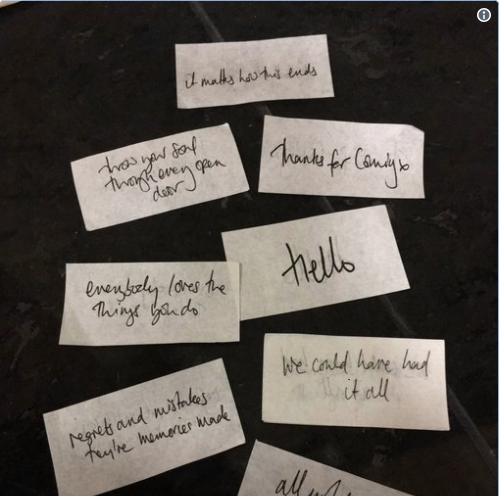 it matters how this ends
throw your soul
through every open
door
Thanks for Coming x
Hello
everybody loves the
things you do
We could have had
it all
regrets and mistakes
they're memories made
all